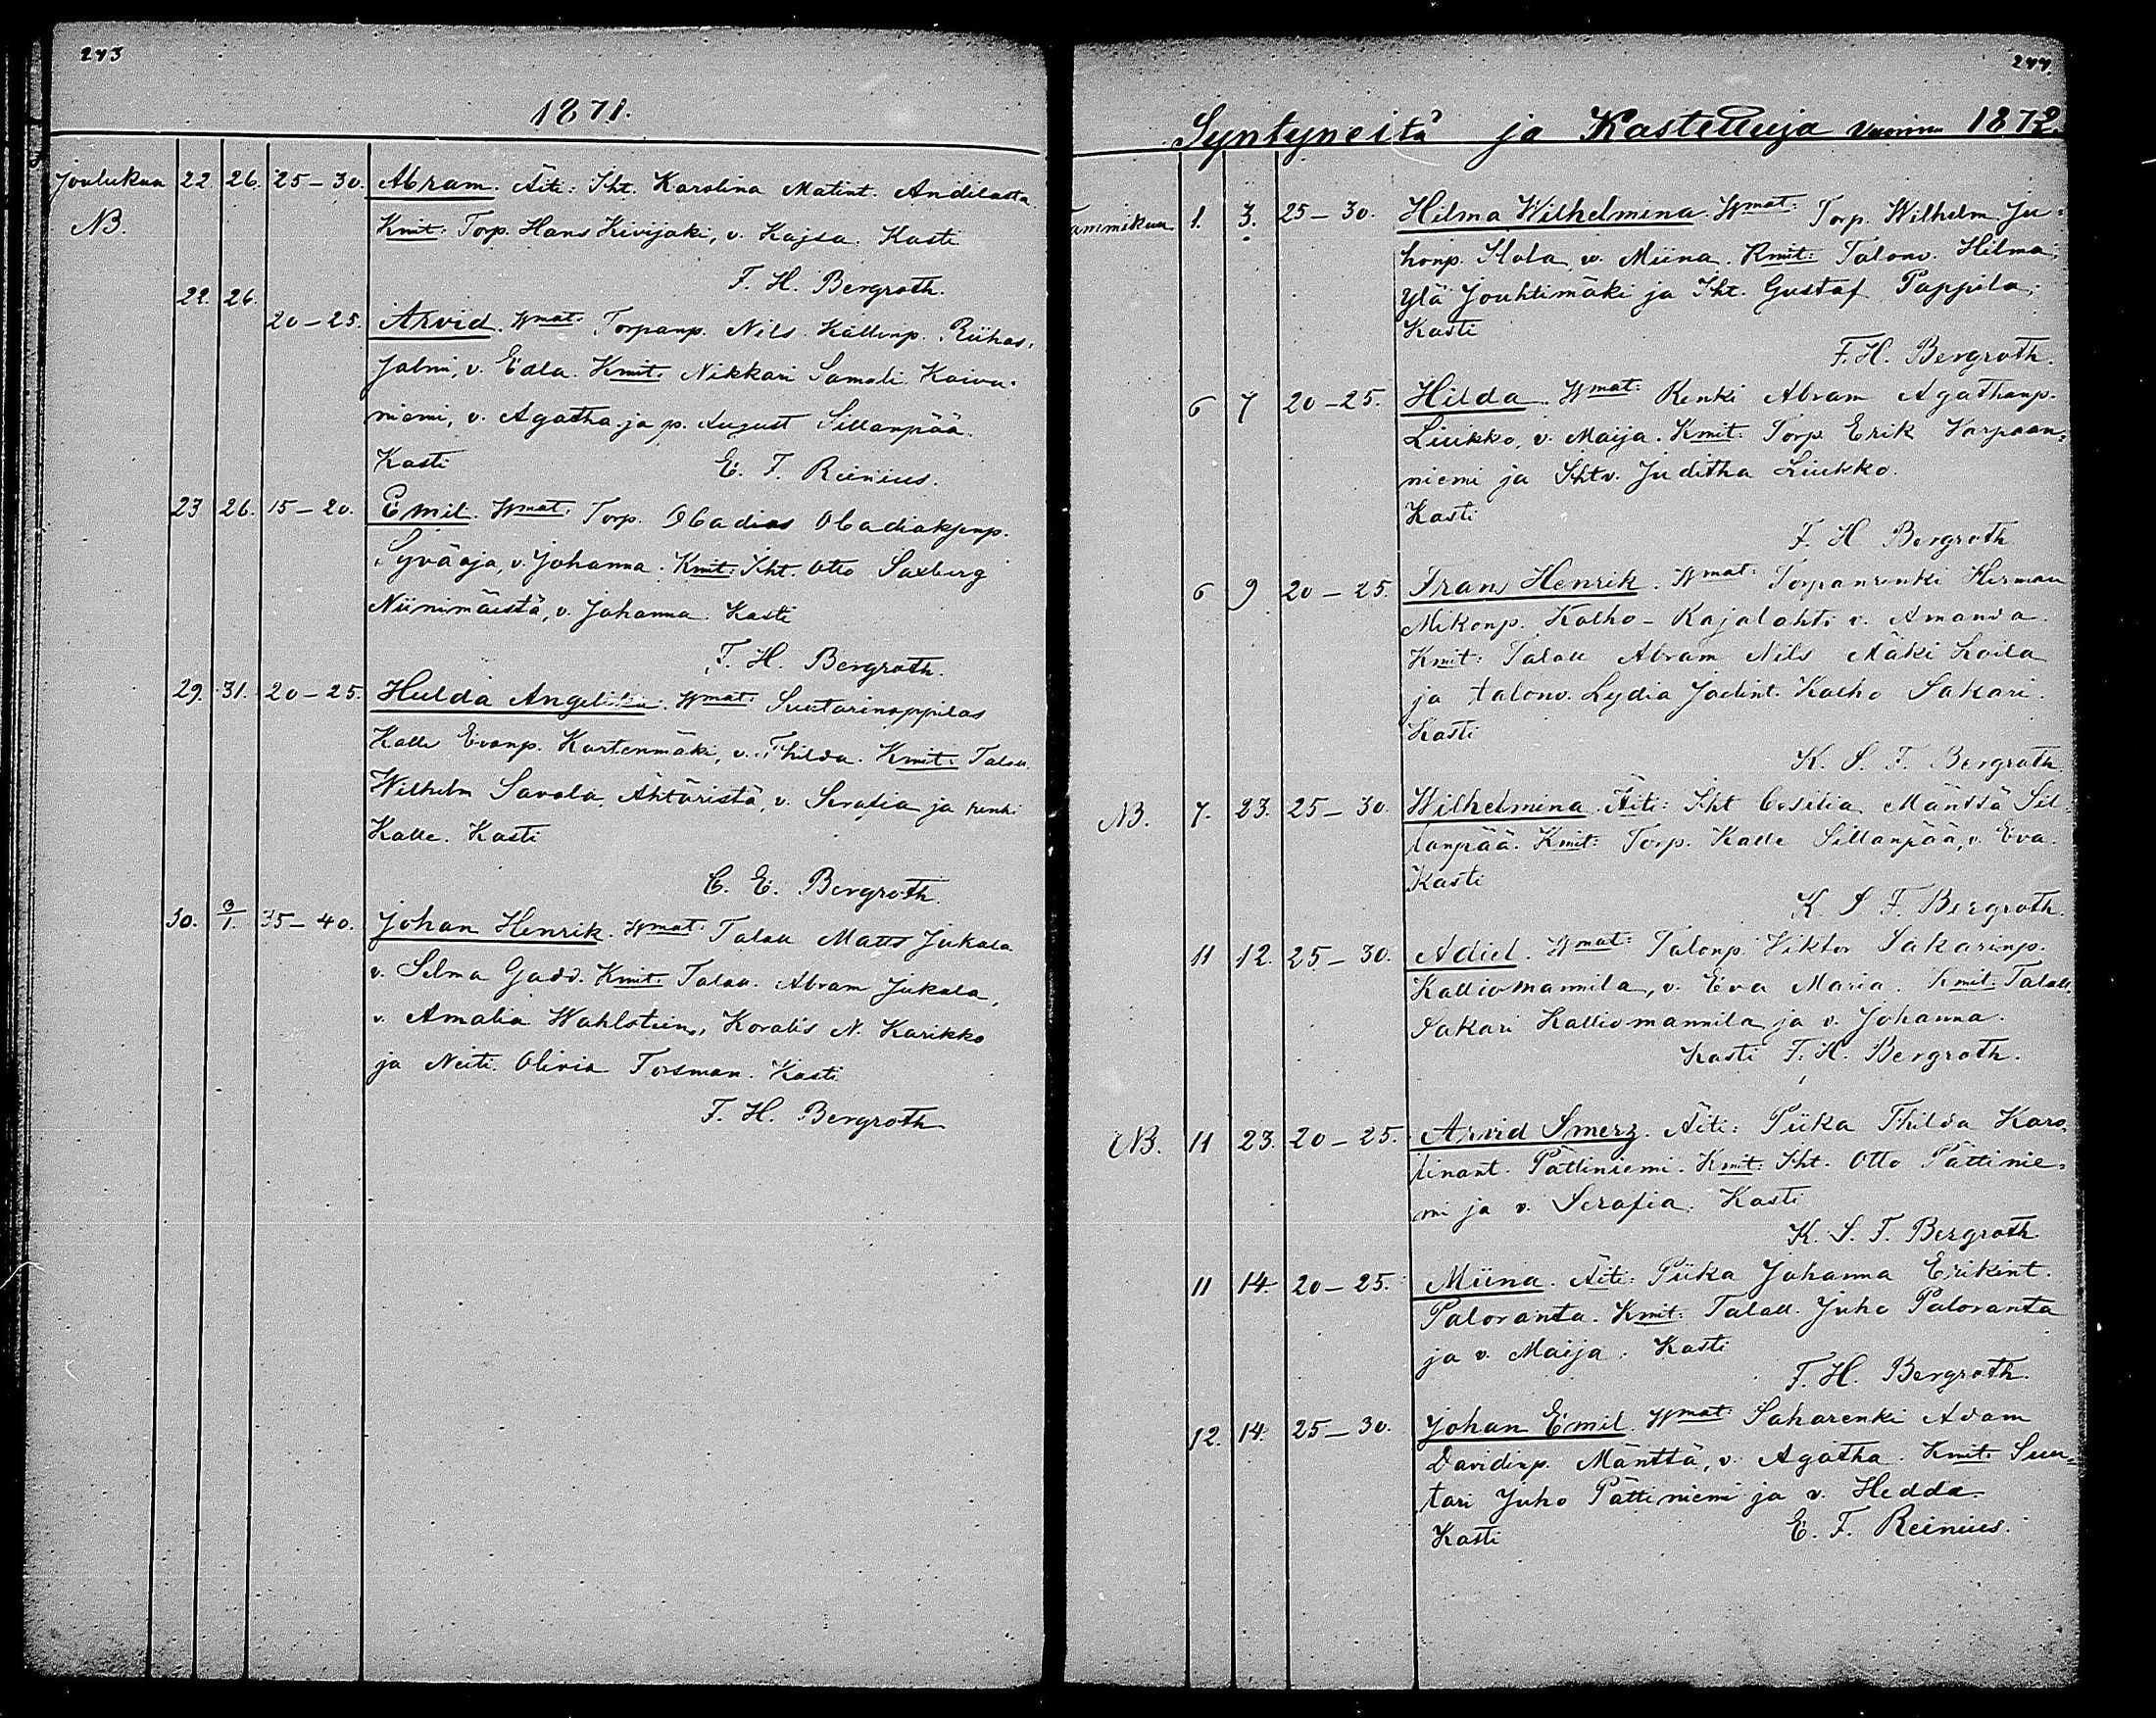 243
1871.
Joulukuu 22. 26. 25-30. Abram. Äiti: Iht. Karolina Matint. Andilasta
NB. Kmit: Torp. Hans Kivijaki, v. Kajsa. Kasti
F. H. Bergroth.
22. 26. 20-25. Arvid. Wmat: Torpanp. Nils Kallenp. Riihas,
Jalmi, v. Edla. Kmit: Nikkari Samoli Koivu-
niemi, v. Agatha ja p. August Sillanpää.
Kasti E. F. Reinius.
23 26. 15-20. Emil. Wmat: Torp. Obadias Obadiaksenp.
Syväoja, v. Johanna. Kmit: Iht. Otto Saxberg
Niinimäestä, v. Johanna. Kasti
F. H. Bergroth.
29. 31. 20-25. Hulda Angelika. Wmat: Suutarinoppilas
Kalle Evanp. Kortenmäki, v. Thilda. Kmit: Talon.
Wilhelm Savola, Ähtäristä, v. Serafia ja renki
Kalle. Kasti
C. E. Bergroth.
30. 9/1. 35-40. Johan Henrik. Wmat: Talall Matts Jukola
v. Selma Gadd. Kmit: Talall. Abram Jukola,
v. Amalia Wahlsteins, N. Karikko
ja Neiti Olivia Forsman. Kasti
F. H. Bergroth
244.
Syntyneitä ja Kastettuja vuonna 1872.
Tammikuu. 1. 3. 25-30. Hilma Wilhelmina. Wmat: Torp. Wilhelm Ju-
honp. Hola, v. Miina. Kmit: Talonv. Hilma,
Ylä Jouhtimäki ja Iht. Gustaf Pappila;
Kasti
F. H. Bergroth.
6 7 20-25. Hilda. Wmat: Renki Abram Agathanp.
Liukko, v. Maija. Kmit: Torp. Erik Varpaan-
niemi ja Ihtv. Juditha Liukko.
Kasti
F. H Bergroth
6 9 20-25. Frans Henrik. Wmat: Torpanrenki Herman
Mikonp. Kalho-Kajalahti v. Amanda.
Kmit: Talall Abram Nils Mäki Loila
ja talonv. Lydia Jaelint. Kalho Sakari.
Kasti
K. S. F. Bergroth.
NB. 7. 23. 25-30. Wilhelmina. Äiti: Iht Cesilia Mänttä Sil-
lanpää. Kmit: Torp. Kalle Sillanpää, v. Eva.
Kasti
K. S F. Bergroth.
11 12. 25-30. Adiel. Wmat: Talonp. Viktor Sakarinp.
Kalliomannila, v. Eva Maria. Kmit: Talall.
Sakari Kalliomannila ja v. Johanna.
Kasti F. H. Bergroth.
NB. 11 23. 20-25. Arvid Smerz. Äiti: Piika Thilda Karo-
linant. Pättiniemi. Kmit: Iht. Otto Pättinie-
mi ja v. Serafia. Kasti
K. S. F. Bergroth.
11 14. 20-25. Miina. Äiti: Piika Johanna Erikint.
Paloranta. Kmit: Talall. Juho Paloranta
ja v. Maija. Kasti
F. H. Bergroth.
12. 14. 25-30. Johan Emil. Wmat: Saharenki Adam
Davidinp. Mänttä, v. Agatha. Kmit: Suu-
tari Juho Pättiniemi ja v. Hedda.
Kasti E. F. Reinius.